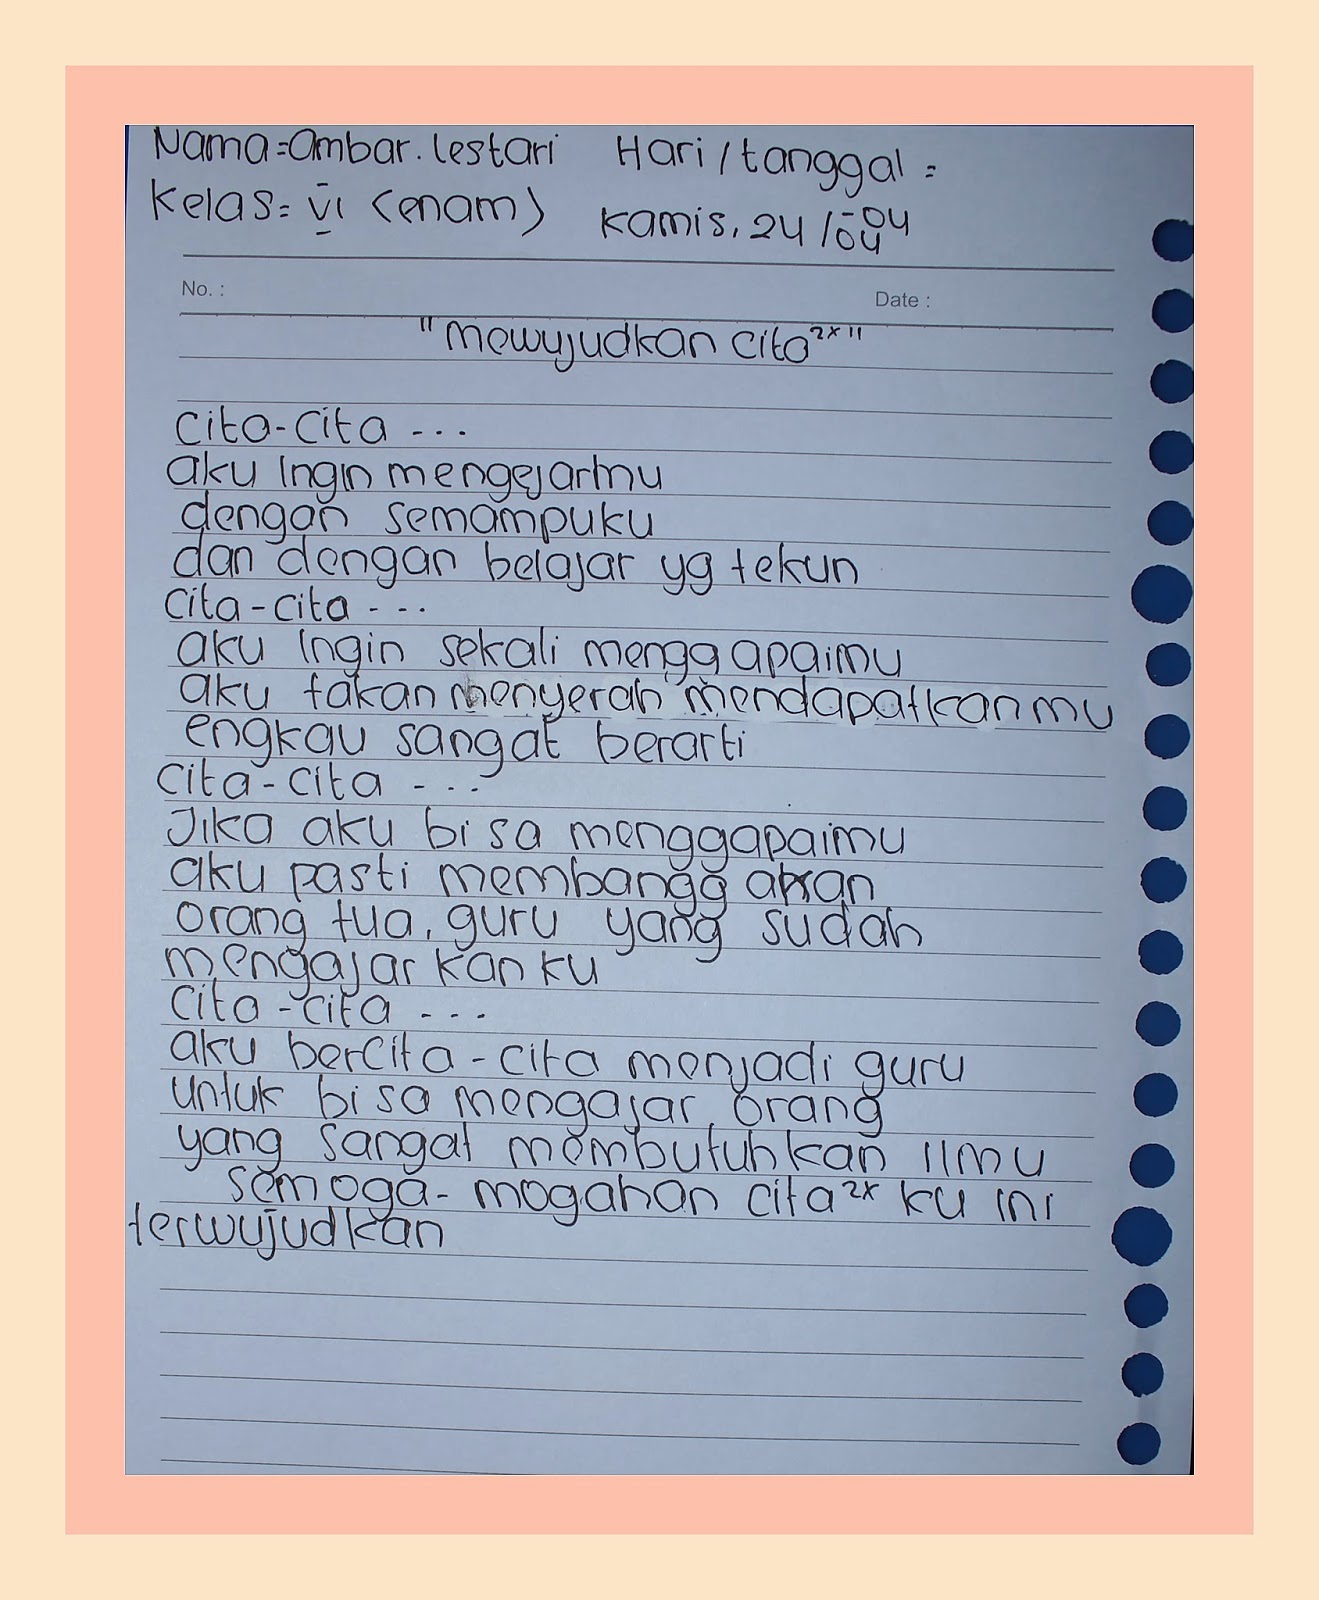 Nama=Ambar.lestari Hari/tanggal=
Kelas= VI (enam) Kamis, 24/04
No. : Date :
"Mewujudkan Cita²ˣ"
Cita-Cita ...
aku Ingin mengejarmu
dengan semampuku
dan dengan belajar yg tekun
Cita-cita ...
aku Ingin sekali menggapaimu
aku takan menyerah mendapatkanmu
engkau sangat berarti
Cita-cita ...
Jika aku bisa menggapaimu
aku pasti membanggakan
orang tua, guru yang sudah
mengajarkanku
Cita-cita ...
aku bercita-cita menjadi guru
untuk bisa mengajar orang
yang sangat membutuhkan Ilmu
semoga-mogahan cita²ˣ ku ini
terwujudkan